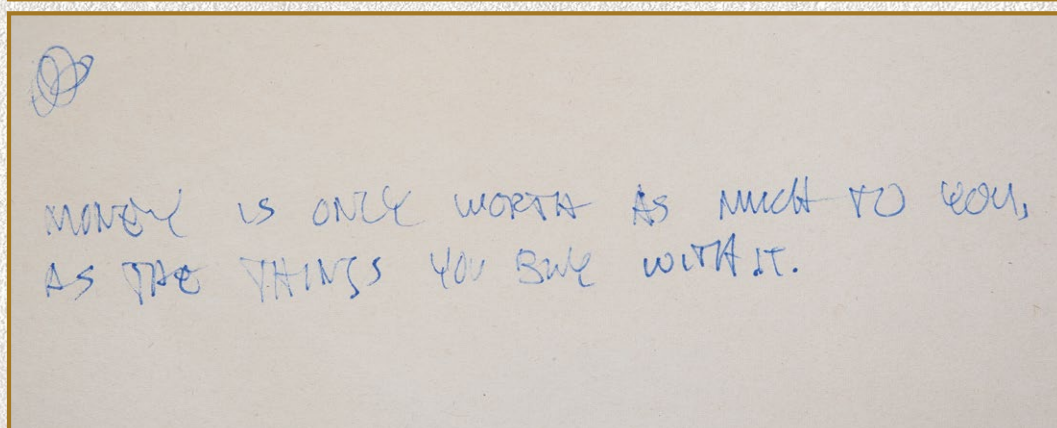 MONEY IS ONLY WORTH AS MUCH TO YOU,
AS THE THINGS YOU BUY WITH IT.